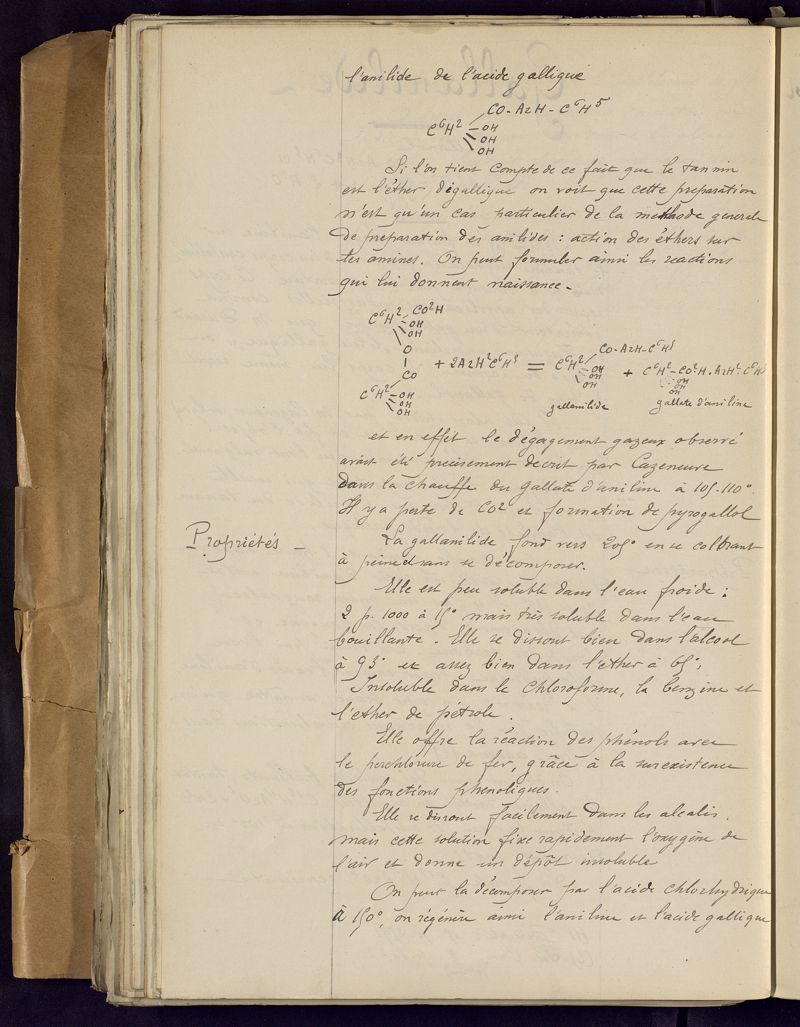 l'anilide de l'acide gallique
CO-AzH-C⁶H⁵
C⁶H² OH
OH
OH
Si l'on tient compte de ce fait que le tannin
est l'éther digallique on voit que cette preparation
n'est qu'un cas particulier de la methode generale
de preparation des anilides : action des éthers sur
les amines. On peut formuler ainsi les reactions
qui lui donnent naissance.
C⁶H² CO²H
OH
OH
O
CO
C⁶H² OH
OH
OH
+ 2AzH²C⁶H⁵ = C⁶H² CO-AzH-C⁶H⁵ OH OH OH + C⁶H²-CO²H.AzH²-C⁶H⁵ OH OH OH
gallanilide gallate d'aniline
et en effet le dégagement gazeux observé
avait été precisement decrit par Cazeneuve
dans la chauffe du gallate d'aniline à 105-110°.
Il y a perte de CO² et formation de pyrogallol
Propriétés -
La gallanilide fond vers 205° en se colorant
à peine et sans se décomposer.
Elle est peu soluble dans l'eau froide :
2 p. 1000 à 15° mais très soluble dans l'eau
bouillante. Elle se dissout bien dans l'alcool
à 93° et assez bien dans l'ether à 65°,
Insoluble dans le chloroforme, la benzine et
l'ether de pétrole.
Elle offre la réaction des phénols avec
le perchlorure de fer, grâce à la surexistence
des fonctions phenoliques.
Elle se dissout facilement dans les alcalis.
mais cette solution fixe rapidement l'oxygène de
l'air et donne un dépôt insoluble
On peut la décomposer par l'acide chlorhydrique
à 150°, on régénère ainsi l'aniline et l'acide gallique